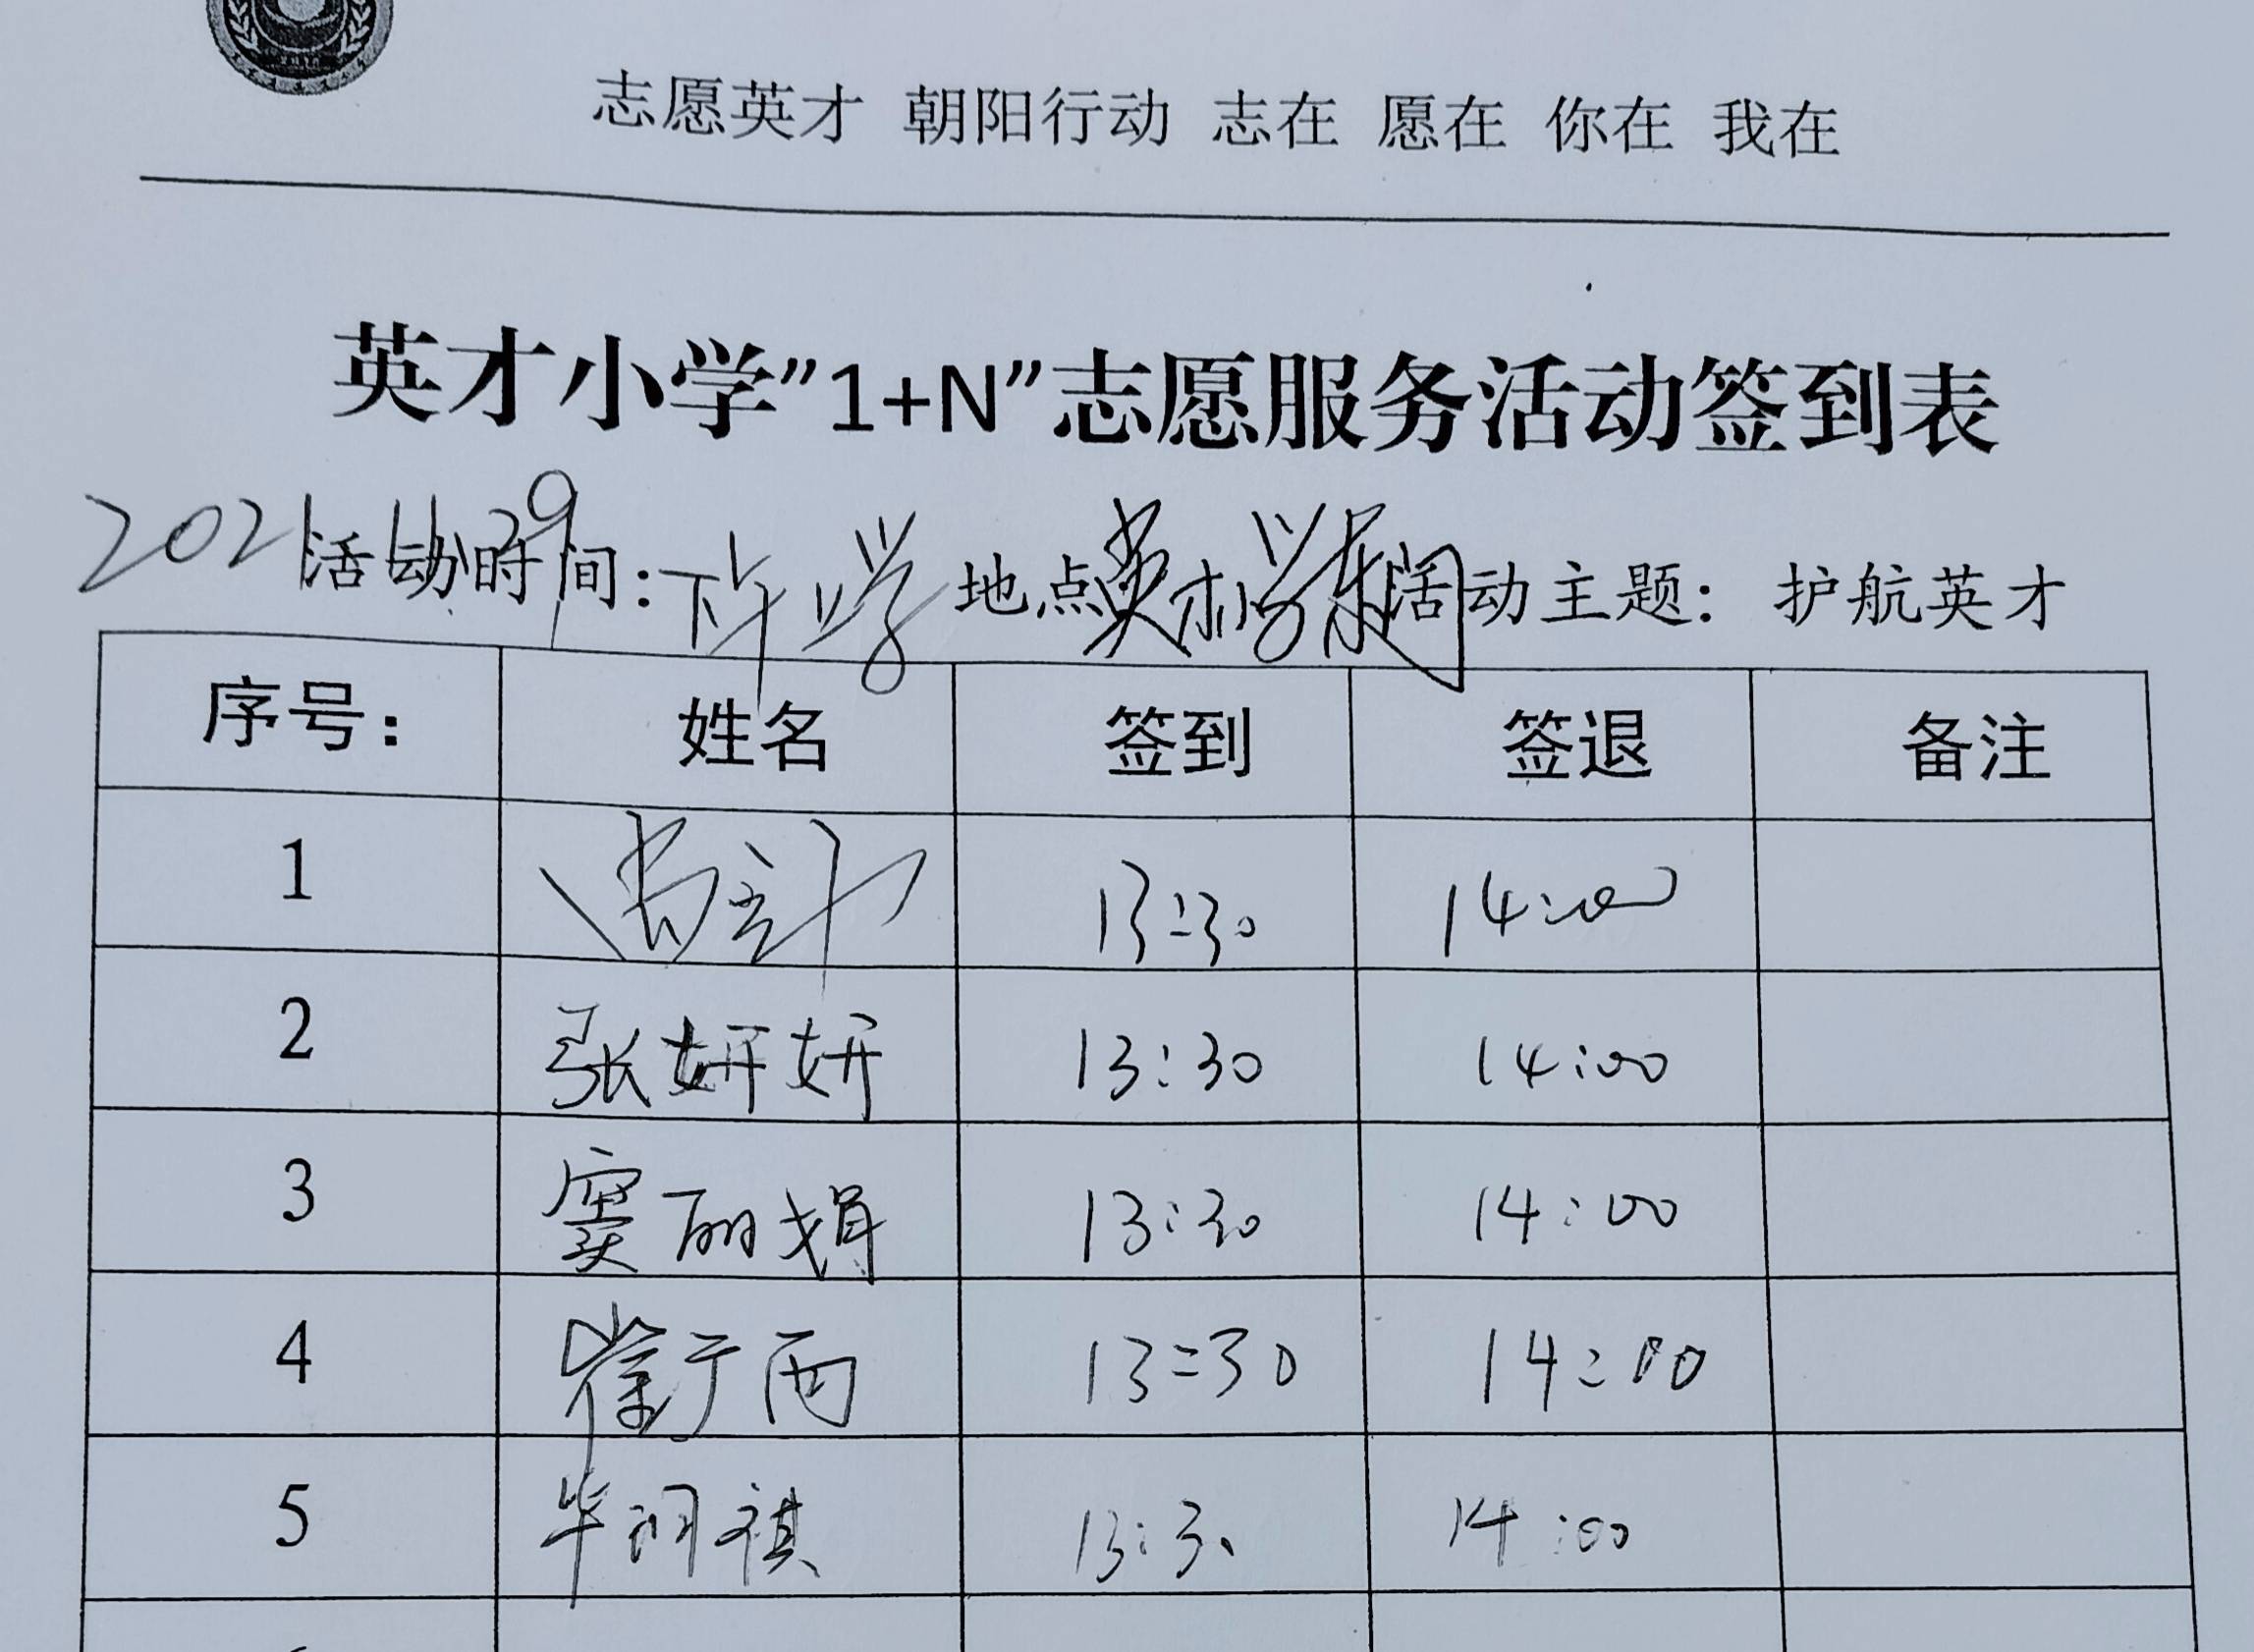 志愿英才 朝阳行动 志在 愿在 你在 我在
英才小学”1+N”志愿服务活动签到表
2021 11.29
活动时间：下午上学 地点英才小学东门 活动主题： 护航英才
序号： 姓名 签到 签退 备注
1 13:30 14:00
2 张妍妍 13:30 14:00
3 窦丽娟 13:30 14:00
4 于雨 13:30 14:00
5 毕润祺 13:30 14:00